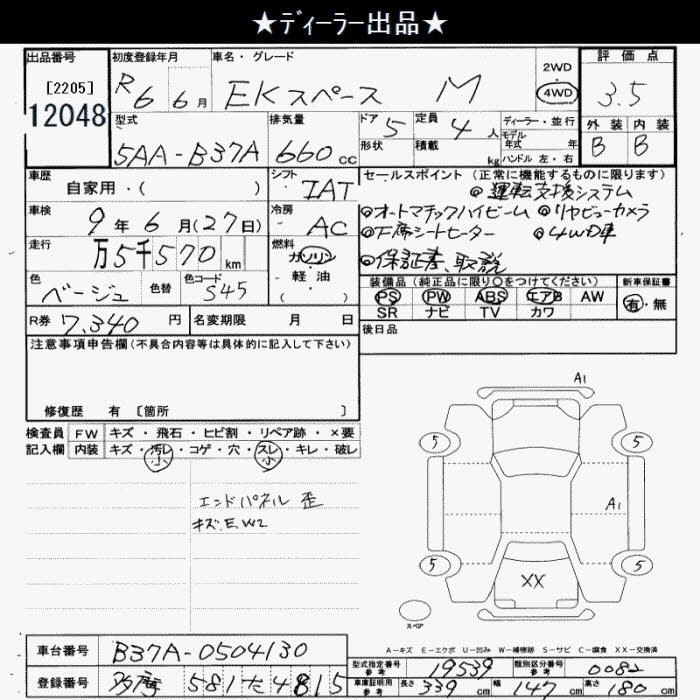 ★ディーラー出品★
出品番号
[2205]
12048
初度登録年月
R6 6月
車名・グレード
EKスペース M
2WD
4WD
評価点
3.5
外装 内装
B B
型式
5AA-B37A
排気量
660 cc
ドア 5
形状
定員 4 人
積載 kg
ディーラー・並行
モデル
年式 年
ハンドル 左・右
車歴
自家用・( )
シフト
IAT
車検
9年6月(27日)
冷房
AC
走行
万5千570 km
燃料
ガソリン
軽・油
( )
色
ベージュ
色替
色コード
S45
R券 7,340 円
名変期限 月 日
セールスポイント (正常に機能するものに限ります)
◎運転支援システム
◎オートマチックハイビーム ◎リヤビューカメラ
◎F席シートヒーター ◎4WD車
◎保証書、取説
装備品 (純正品に限り○をつけてください)
PS PW ABS エアB AW
SR ナビ TV カワ
新車保証書
有・無
後日品
注意事項申告欄(不具合内容等は具体的に記入して下さい)
修復歴 有 〔箇所 〕
検査員 FW キズ・飛石・ヒビ割・リペア跡・×要
記入欄 内装 キズ・汚レ・コゲ・穴・スレ・キレ・破レ
小 小
エンドパネル 歪
キズ.E.W2
A1
5 5
A1
5 5
XX
スペア
A-キズ E-エクボ U-凹み W-補修跡 S-サビ C-腐食 XX-交換済
車台番号 B37A-0504130
登録番号 多摩 581 た 4815
型式指定番号
参考
19539
類別区分番号
参考
0082
車庫証明用
参考
長さ 339 cm 幅 147 cm 高さ 180 cm